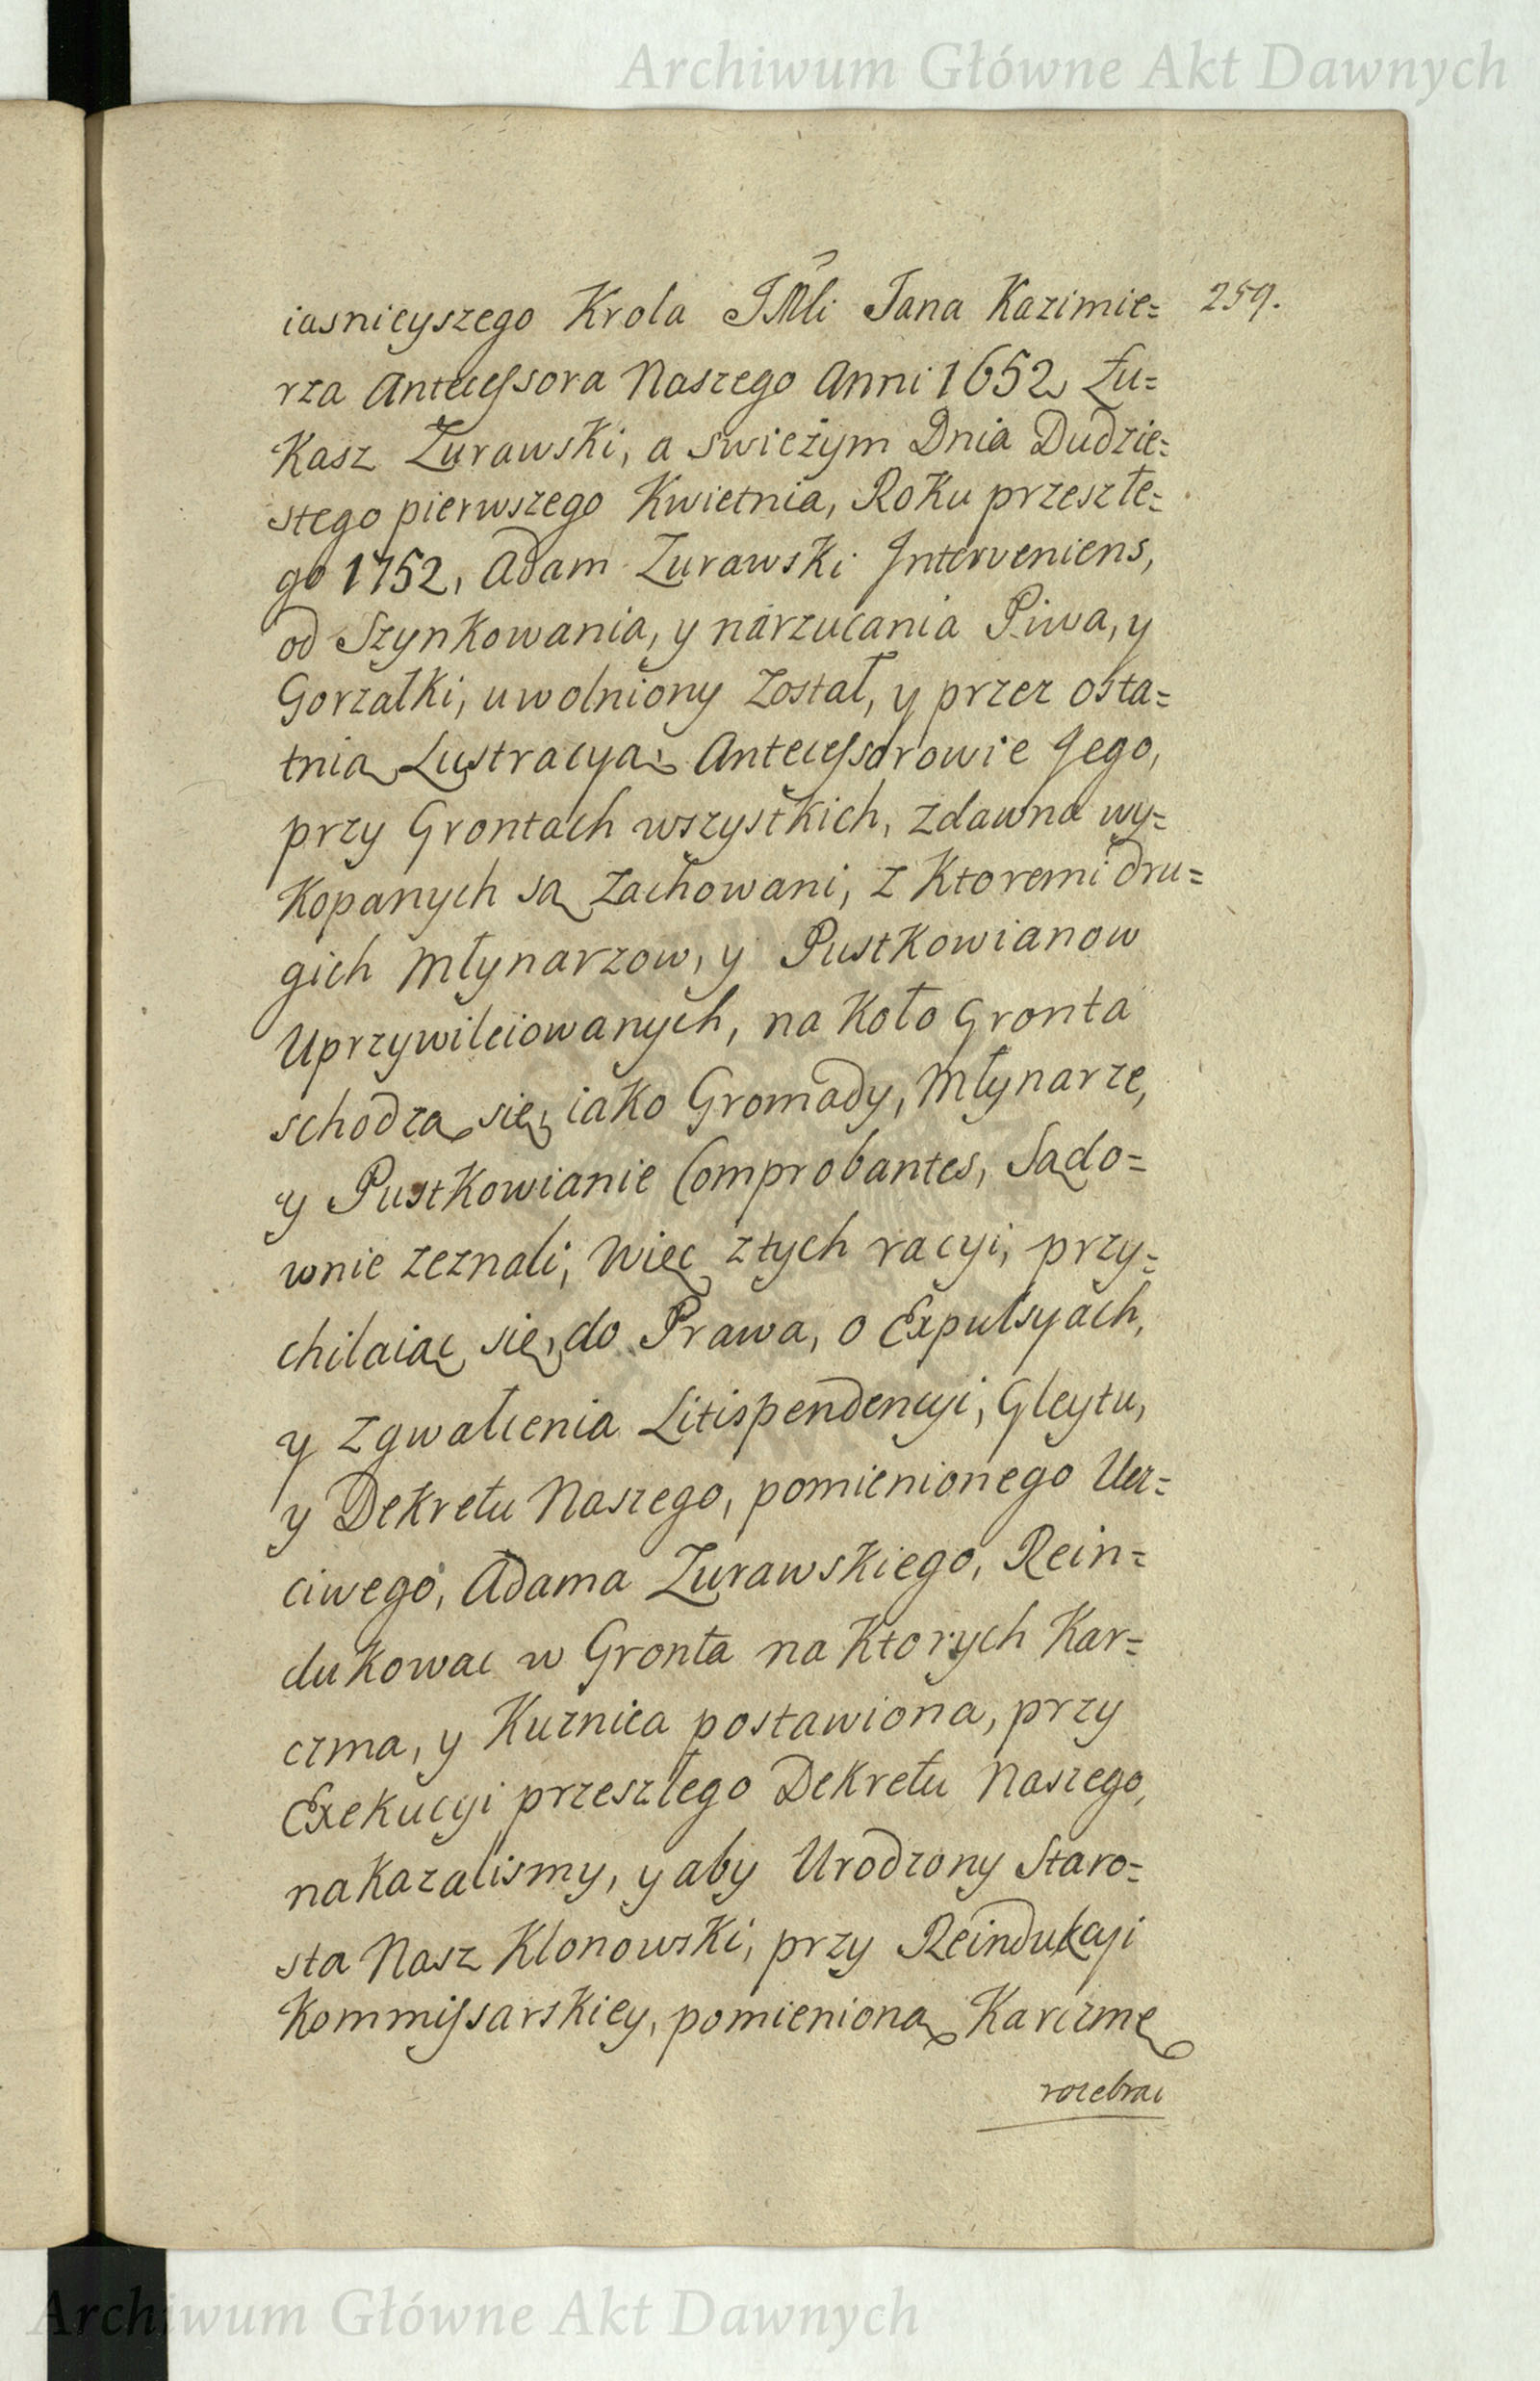 Archiwum Główne Akt Dawnych
259.
iasnieyszego Krola JMci Jana Kazimie=
rza Antecessora Naszego Anni 1652 Łu=
kasz Zurawski, a swieżym Dnia Dudzie=
stego pierwszego Kwietnia, Roku przeszłe=
go 1752, Adam Zurawski Interveniens,
od Szynkowania, y narzucania Piwa, y
Gorzałki, uwolniony został, y przez osta=
tnią Lustracyą, Antecessorowie Jego,
przy Grontach wszystkich, zdawna wy=
kopanych są zachowani, z ktoremi dru=
gich Młynarzow, y Pustkowianow
Uprzywileiowanych, na koło Gronta
schodzą się, iako Gromady, Młynarze,
y Pustkowianie Comprobantes, Sądo=
wnie zeznali, Więc ztych racyi, przy=
chilaiąc się, do Prawa, o Expulsyach,
y zgwałcenia Litispendencyi, Gleytu,
y Dekretu Naszego, pomienionego Ucz=
ciwego, Adama Zurawskiego, Rein=
dukowac w Gronta na ktorych Kar=
czma, y Kuznica postawiona, przy
Exekucyi przeszłego Dekretu Naszego,
nakazalismy, y aby Urodzony Staro=
sta Nasz Klonowski, przy Reindukcyi
Kommissarskiey, pomienioną Karczmę
rozebrac
Archiwum Główne Akt Dawnych